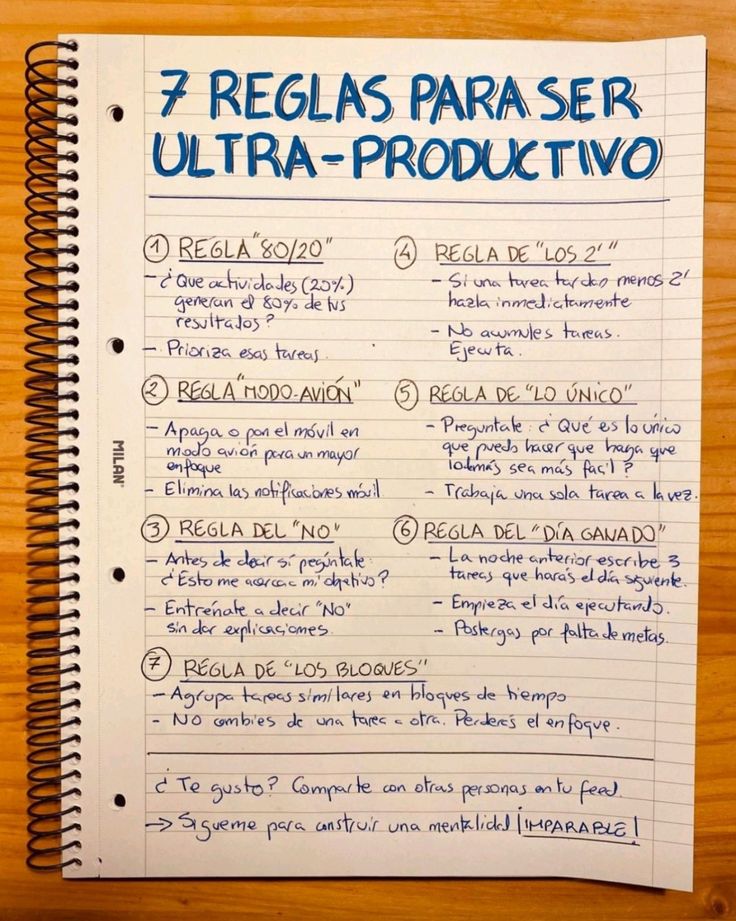 7 REGLAS PARA SER
ULTRA-PRODUCTIVO
1 REGLA "80/20"
- ¿Que actividades (20%)
generan el 80% de tus
resultados?
- Prioriza esas tareas.
2 REGLA "MODO-AVIÓN"
- Apaga o pon el móvil en
modo avión para un mayor
enfoque
- Elimina las notificaciones móvil
3 REGLA DEL "NO"
- Antes de decir sí pegúntate:
¿Esto me acerca a mi objetivo?
- Entrénate a decir "NO"
sin dar explicaciones.
4 REGLA DE "LOS 2'"
- Si una tarea tarda menos 2'
hazla inmedictamente
- No acumules tareas.
Ejecuta.
5 REGLA DE "LO ÚNICO"
- Preguntate: ¿Qué es lo único
que puedo hacer que haga que
lo demás sea más facil?
- Trabaja una sola tarea a la vez.
6 REGLA DEL "DÍA GANADO"
- La noche anterior escribe 3
tareas que harás el día siguiente.
- Empieza el día ejecutando.
- Postergas por falta de metas.
7 REGLA DE "LOS BLOQUES"
- Agrupa tareas similares en bloques de tiempo
- NO cambies de una tarea a otra. Perderás el enfoque.
¿Te gusto? Comparte con otras personas en tu feed.
→ Sígueme para construir una mentalidad ¡IMPARABLE!
MILAN